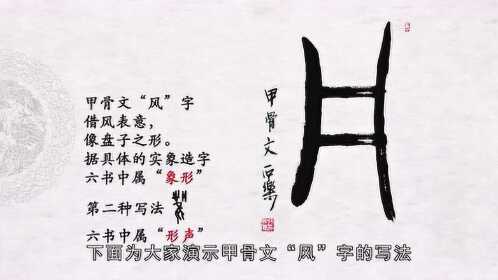 甲骨文“风”字
借风表意，
像盘子之形。
据具体的实象造字
六书中属“象形”
第二种写法
六书中属“形声”
甲骨文
下面为大家演示甲骨文“风”字的写法